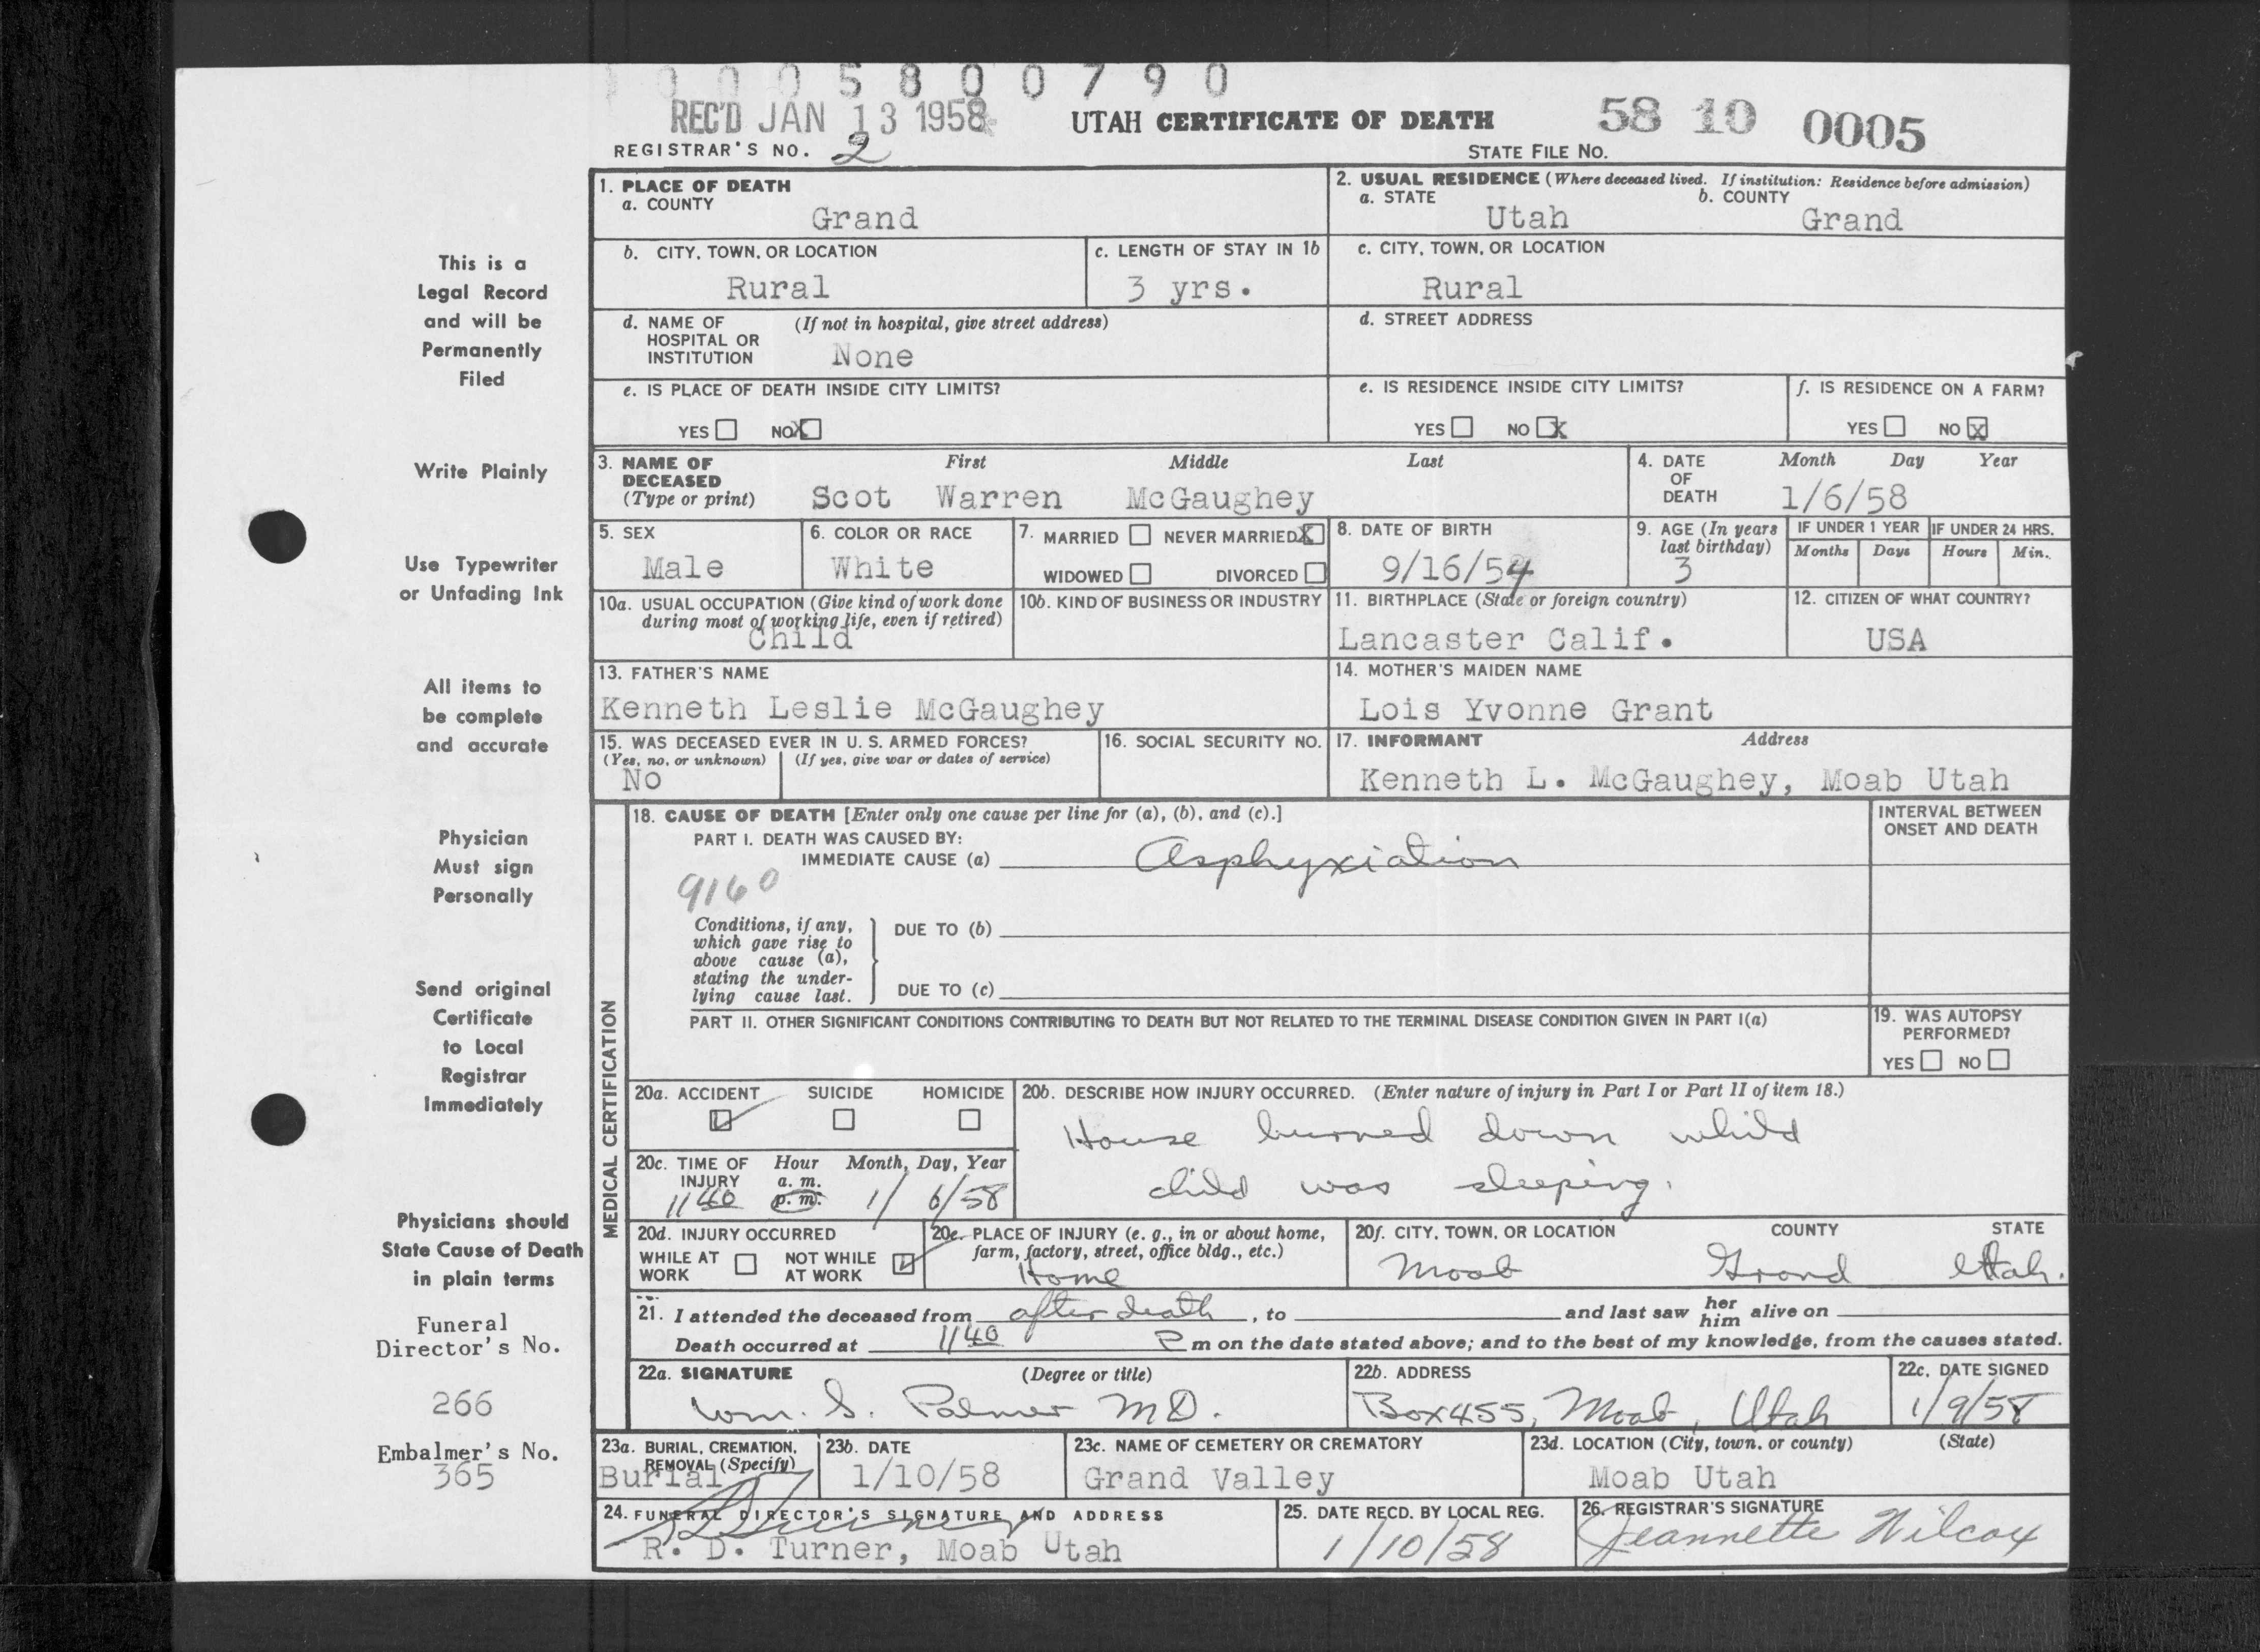 0 0 0 5 8 0 0 7 9 0
REC'D JAN 13 1958
UTAH CERTIFICATE OF DEATH
58 10 0005
REGISTRAR'S NO. 2
STATE FILE NO.
This is a
Legal Record
and will be
Permanently
Filed
Write Plainly
Use Typewriter
or Unfading Ink
All items to
be complete
and accurate
Physician
Must sign
Personally
Send original
Certificate
to Local
Registrar
Immediately
Physicians should
State Cause of Death
in plain terms
Funeral
Director's No.
266
Embalmer's No.
365
1. PLACE OF DEATH
a. COUNTY
Grand
2. USUAL RESIDENCE (Where deceased lived. If institution: Residence before admission)
a. STATE
Utah
b. COUNTY
Grand
b. CITY, TOWN, OR LOCATION
Rural
c. LENGTH OF STAY IN 1b
3 yrs.
c. CITY, TOWN, OR LOCATION
Rural
d. NAME OF HOSPITAL OR INSTITUTION
(If not in hospital, give street address)
None
d. STREET ADDRESS
e. IS PLACE OF DEATH INSIDE CITY LIMITS?
YES NO X
e. IS RESIDENCE INSIDE CITY LIMITS?
YES NO X
f. IS RESIDENCE ON A FARM?
YES NO X
3. NAME OF DECEASED
(Type or print)
First Middle Last
Scot Warren McGaughey
4. DATE OF DEATH
Month Day Year
1/6/58
5. SEX
Male
6. COLOR OR RACE
White
7. MARRIED NEVER MARRIED X
WIDOWED DIVORCED
8. DATE OF BIRTH
9/16/54
9. AGE (In years last birthday)
3
IF UNDER 1 YEAR
Months Days
IF UNDER 24 HRS.
Hours Min.
10a. USUAL OCCUPATION (Give kind of work done during most of working life, even if retired)
Child
10b. KIND OF BUSINESS OR INDUSTRY
11. BIRTHPLACE (State or foreign country)
Lancaster Calif.
12. CITIZEN OF WHAT COUNTRY?
USA
13. FATHER'S NAME
Kenneth Leslie McGaughey
14. MOTHER'S MAIDEN NAME
Lois Yvonne Grant
15. WAS DECEASED EVER IN U. S. ARMED FORCES?
(Yes, no, or unknown) (If yes, give war or dates of service)
No
16. SOCIAL SECURITY NO.
17. INFORMANT Address
Kenneth L. McGaughey, Moab Utah
MEDICAL CERTIFICATION
18. CAUSE OF DEATH [Enter only one cause per line for (a), (b), and (c).]
PART I. DEATH WAS CAUSED BY:
IMMEDIATE CAUSE (a) Asphyxiation
INTERVAL BETWEEN ONSET AND DEATH
9160
Conditions, if any,
which gave rise to
above cause (a),
stating the under-
lying cause last.
DUE TO (b)
DUE TO (c)
PART II. OTHER SIGNIFICANT CONDITIONS CONTRIBUTING TO DEATH BUT NOT RELATED TO THE TERMINAL DISEASE CONDITION GIVEN IN PART I(a)
19. WAS AUTOPSY PERFORMED?
YES NO
20a. ACCIDENT SUICIDE HOMICIDE
20b. DESCRIBE HOW INJURY OCCURRED. (Enter nature of injury in Part I or Part II of item 18.)
House burned down while
child was sleeping.
20c. TIME OF INJURY
Hour Month, Day, Year
a. m.
p. m.
1140 1/6/58
20d. INJURY OCCURRED
WHILE AT WORK NOT WHILE AT WORK
20e. PLACE OF INJURY (e. g., in or about home, farm, factory, street, office bldg., etc.)
Home
20f. CITY, TOWN, OR LOCATION COUNTY STATE
Moab Grand Utah.
21. I attended the deceased from after death, to and last saw her him alive on
Death occurred at 1140 P m on the date stated above; and to the best of my knowledge, from the causes stated.
22a. SIGNATURE (Degree or title)
Wm. S. Palmer MD.
22b. ADDRESS
Box 455, Moab, Utah
22c. DATE SIGNED
1/9/58
23a. BURIAL, CREMATION, REMOVAL (Specify)
Burial
23b. DATE
1/10/58
23c. NAME OF CEMETERY OR CREMATORY
Grand Valley
23d. LOCATION (City, town, or county) (State)
Moab Utah
24. FUNERAL DIRECTOR'S SIGNATURE AND ADDRESS
R. D. Turner, Moab Utah
25. DATE RECD. BY LOCAL REG.
1/10/58
26. REGISTRAR'S SIGNATURE
Jeannette Wilcox